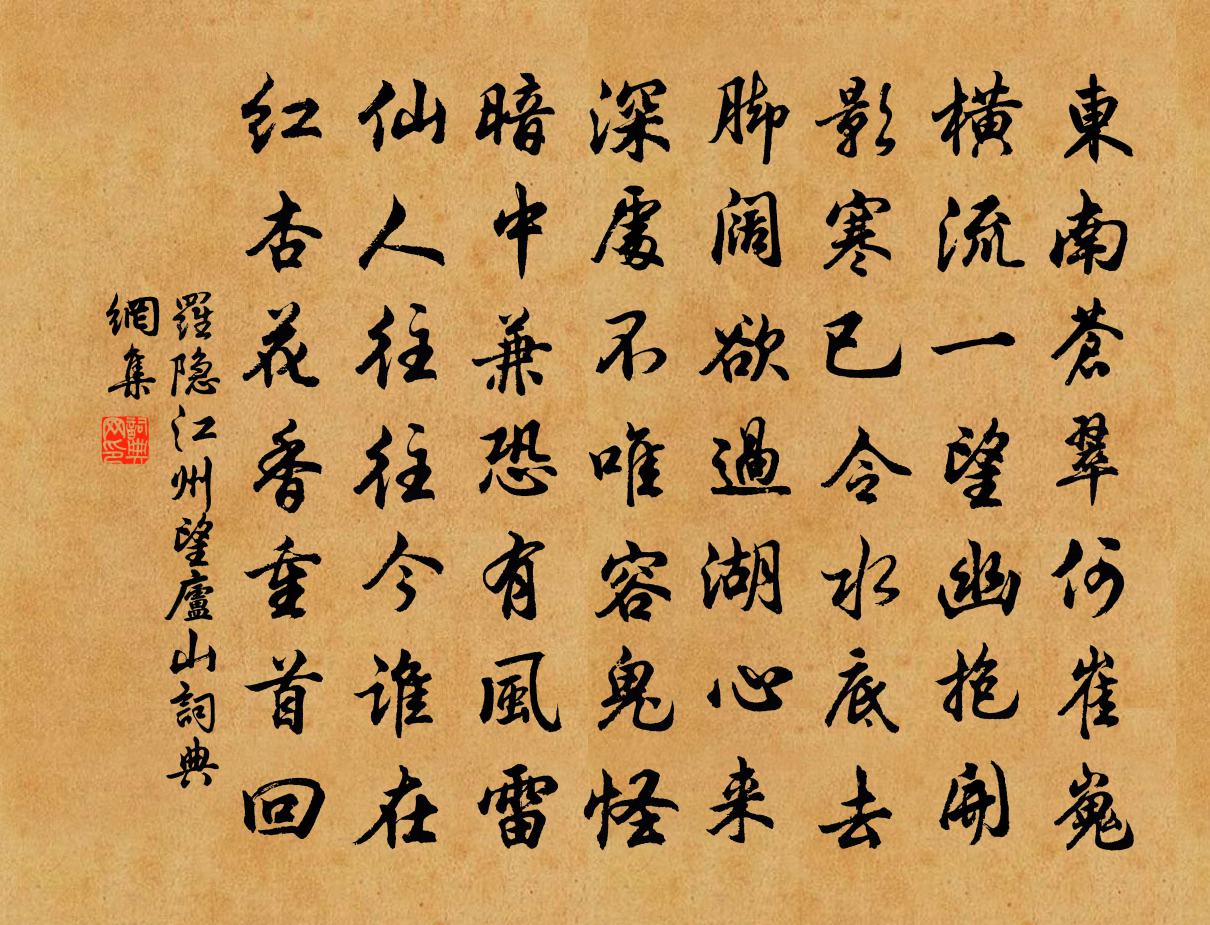 東南蒼翠何崔嵬
橫流一望幽抱開
影寒已令水底去
脚闊欲過湖心來
深處不唯容鬼怪
暗中兼恐有風雷
仙人往往今誰在
紅杏花香重首回
羅隐江州望廬山詞典
網集
詞典
网印